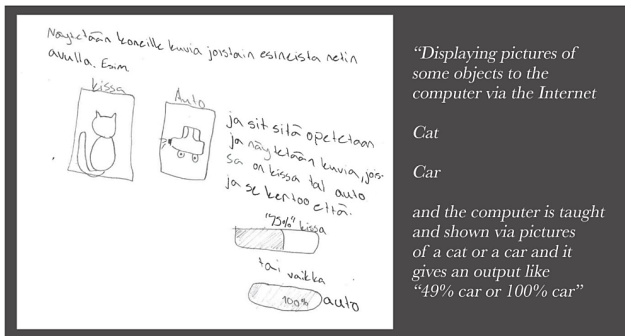 Näytetään koneille kuvia joistain esineistä netin
avulla. Esim
kissa
Auto
ja sit sitä opetetaan
ja näytetään kuvia, jois-
sa on kissa tai auto
ja se kertoo että.
"75%" kissa
tai vaikka
100% auto
“Displaying pictures of
some objects to the
computer via the Internet
Cat
Car
and the computer is taught
and shown via pictures
of a cat or a car and it
gives an output like
“49% car or 100% car”